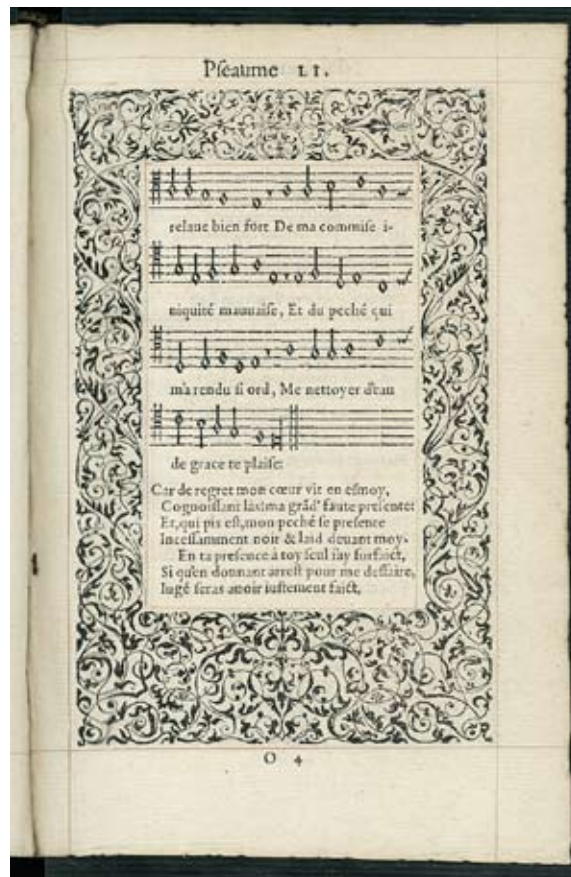 Pſeaume LI.
relaue bien fort De ma commiſe i-
niquité mauuaiſe, Et du peché qui
m'a rendu ſi ord, Me nettoyer d'eau
de grace te plaiſe:
Car de regret mon cœur vit en eſmoy,
Cognoiſſant las! ma grãd' faute preſente:
Et, qui pis eſt, mon peché ſe preſente
Inceſſamment noir & laid deuant moy.
En ta preſence à toy ſeul i'ay forfaict,
Si qu'en donnant arreſt pour me deffaire,
Iugé ſeras auoir iuſtement faict,
O 4